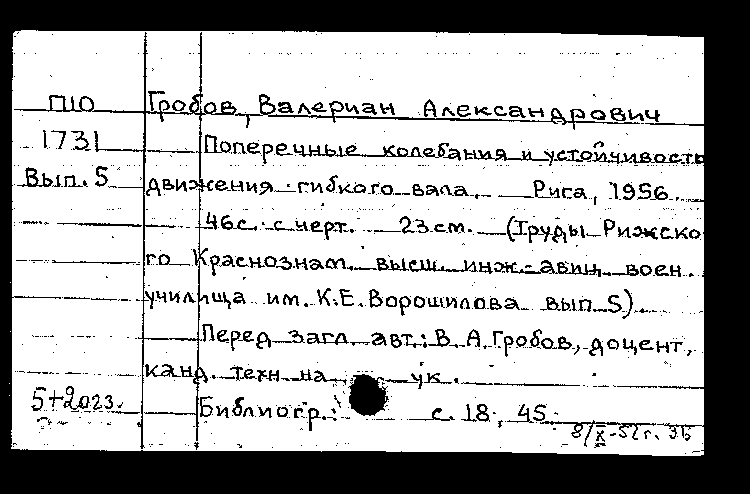 П10 Гробов, Валериан Александрович
1731 Поперечные колебания и устойчивость
Вып. 5 движения гибкого вала. Рига, 1956.
46с. с черт. 23 см. (Труды Рижско
го Краснознам. высш. инж.-авиц. воен.
училища им. К.Е. Ворошилова вып 5).
Перед загл. авт.: В. А. Гробов, доцент,
канд. техн на ук.
5+2023. Библиогр.: с. 18, 45.
8/X-52г. ЗБ